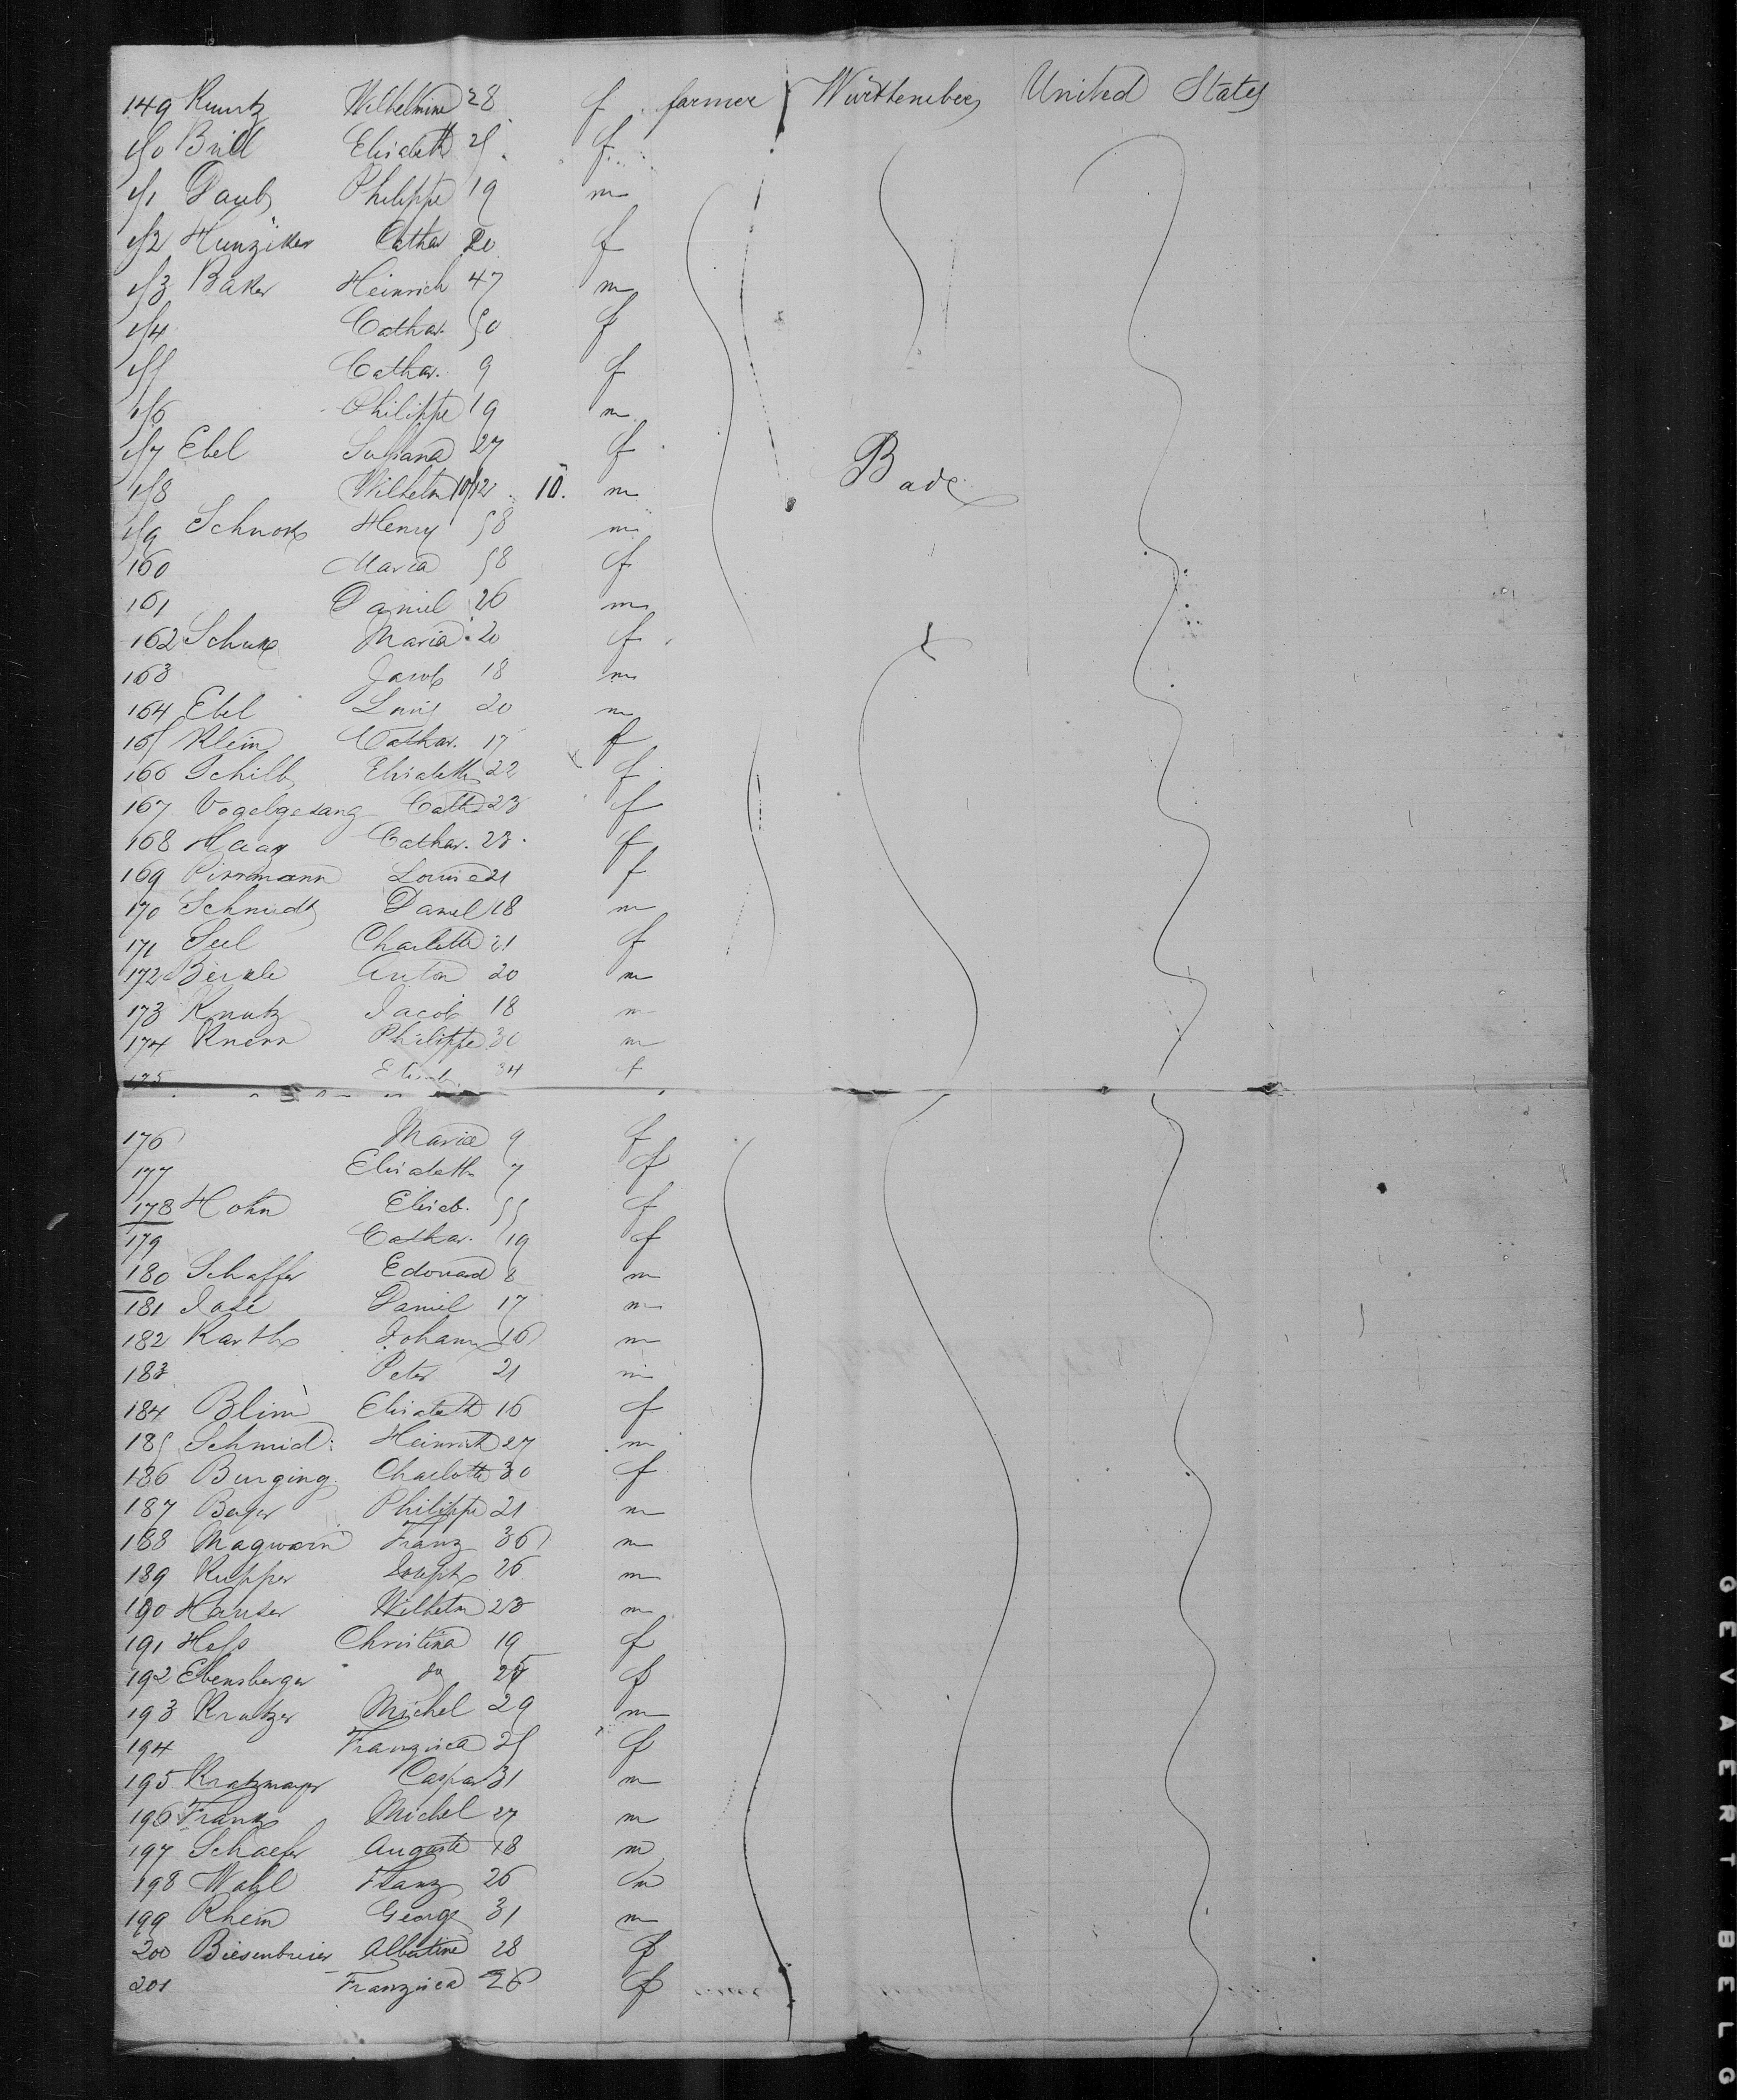 149 Kuntz Wilhelmine 28 f farmer Württemberg United States
150 Brill Elisabeth 25 f
151 Daub Philippe 19 m
152 Hunziker Cathar 20 f
153 Baker Heinrich 47 m
154 Cathar. 50 f
155 Cathar. 9 f
156 Philippe 19 m
157 Ebel Susana 27 f
158 Wilhelm 10/12 10. m
Bade
159 Schnok Henry 58 m
160 Maria 58 f
161 Daniel 26 m
162 Maria 20 f
163 Jacob 18 m
164 Ebel Louis 20 m
165 Klein Cathar. 17 f
166 Schilb Elisabeth 22 f
167 Vogelgesang Cath 23 f
168 Haag Cathar. 23 f
169 Pirrmann Louise 21 f
170 Schmidt Daniel 18 m
171 Seel Charlotte 21 f
172 Berkle Anton 20 m
173 Knutz Jacob 18 m
174 Knerr Philippe 30 m
175 Elisab. 34 f
176 Maria 9 f
177 Elisabeth 7 f
178 Hohn Elisab. 55 f
179 Cathar. 19 f
180 Schaffer Edouard 8 m
181 José Daniel 17 m
182 Karth Johann 16 m
183 Peter 21 m
184 Blim Elisabeth 16 f
185 Schmid Heinrich 27 m
186 Burging Charlotte 30 f
187 Beyer Philippe 21 m
188 Magwarin Franz 36 m
189 Kupper Joseph 26 m
190 Hauser Wilhelm 23 m
191 Hess Christina 19 f
192 Ebensberger do 25 f
193 Kratzer Michel 29 m
194 Franzisca 25 f
195 Kratzmayer Caspar 31 m
196 Frank Michel 27 m
197 Schaefer Auguste 18 m
198 Wahl Franz 26 m
199 Rhein George 31 m
200 Biesenbreier Albertine 28 f
201 Franzisca 26 f
GEVAERT BELG